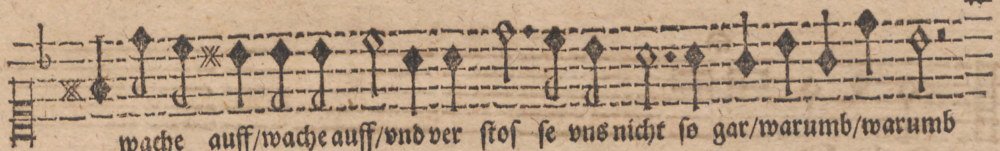 wache auff/wache auff/vnd ver ſtoſ ſe vns nicht ſo gar/warumb/warumb